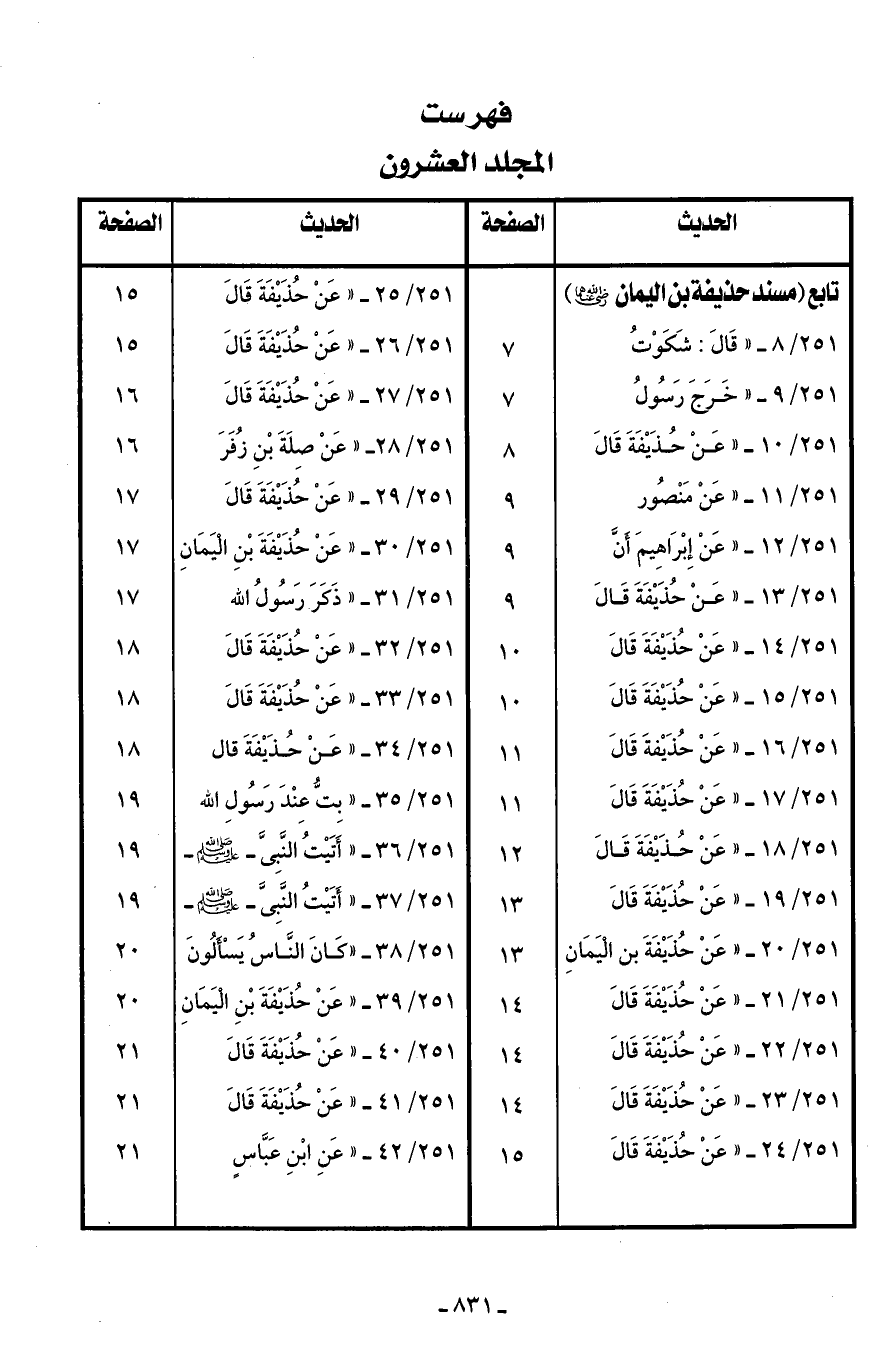 فهرست
المجلد العشرون
الحديث الصفحة
تابع (مسند حذيفة بن اليمان رضي الله عنهما)
٨/٢٥١ ـ « قَالَ : شَكَوْتُ ٧
٩/٢٥١ ـ « خَرَجَ رَسُولُ ٧
١٠/٢٥١ ـ « عَنْ حُذَيْفَةَ قَالَ ٨
١١/٢٥١ ـ « عَنْ مَنْصُور ٩
١٢/٢٥١ ـ « عَنْ إِبْرَاهِيمَ أَنَّ ٩
١٣/٢٥١ ـ « عَنْ حُذَيْفَةَ قَالَ ٩
١٤/٢٥١ ـ « عَنْ حُذَيْفَةَ قَالَ ١٠
١٥/٢٥١ ـ « عَنْ حُذَيْفَةَ قَالَ ١٠
١٦/٢٥١ ـ « عَنْ حُذَيْفةَ قَالَ ١١
١٧/٢٥١ ـ « عَنْ حُذَيْفَةَ قَالَ ١١
١٨/٢٥١ ـ « عَنْ حُذَيْفَةَ قَالَ ١٢
١٩/٢٥١ ـ « عَنْ حُذَيْفَةَ قَالَ ١٣
٢٠/٢٥١ ـ « عَنْ حُذَيْفَةَ بن الْيَمَانِ ١٣
٢١/٢٥١ ـ « عَنْ حُذَيْفَةَ قَالَ ١٤
٢٢/٢٥١ ـ « عَنْ حُذَيْفَةَ قَالَ ١٤
٢٣/٢٥١ ـ « عَنْ حُذَيْفَةَ قَالَ ١٤
٢٤/٢٥١ ـ « عَنْ حُذَيْفَةَ قَالَ ١٥
الحديث الصفحة
٢٥/٢٥١ ـ « عَنْ حُذَيْفَةَ قَالَ ١٥
٢٦/٢٥١ ـ « عَنْ حُذَيْفَةَ قَالَ ١٥
٢٧/٢٥١ ـ « عَنْ حُذَيْفَةَ قَالَ ١٦
٢٨/٢٥١ـ « عَنْ صِلَةَ بْنِ زُفَرَ ١٦
٢٩/٢٥١ ـ « عَنْ حُذَيْفَةَ قَالَ ١٧
٣٠/٢٥١ ـ « عَنْ حُذَيْفَةَ بْنِ الْيَمَانِ ١٧
٣١/٢٥١ ـ « ذَكَرَ رَسُولُ الله ١٧
٣٢/٢٥١ ـ « عَنْ حُذَيْفَةَ قَالَ ١٨
٣٣/٢٥١ ـ « عَنْ حُذَيْفَةَ قَالَ ١٨
٣٤/٢٥١ ـ « عَنْ حُذَيْفَةَ قال ١٨
٣٥/٢٥١ ـ « بِتُّ عِنْدَ رَسُولِ الله ١٩
٣٦/٢٥١ ـ « أَتَيْتُ النَّبِىَّ ـ ﷺ ـ ١٩
٣٧/٢٥١ ـ « أَتَيْتُ النَّبِىَّ ـ ﷺ ـ ١٩
٣٨/٢٥١ ـ «كَانَ النَّاسُ يَسْأَلُونَ ٢٠
٣٩/٢٥١ ـ « عَنْ حُذَيْفَةَ بْنِ الْيَمَانِ ٢٠
٤٠/٢٥١ ـ « عَنْ حُذَيْفَةَ قَالَ ٢١
٤١/٢٥١ ـ « عَنْ حُذَيْفَةَ قَالَ ٢١
٤٢/٢٥١ ـ « عَنِ ابْنِ عَبَّاسٍ ٢١
ـ ٨٣١ ـ